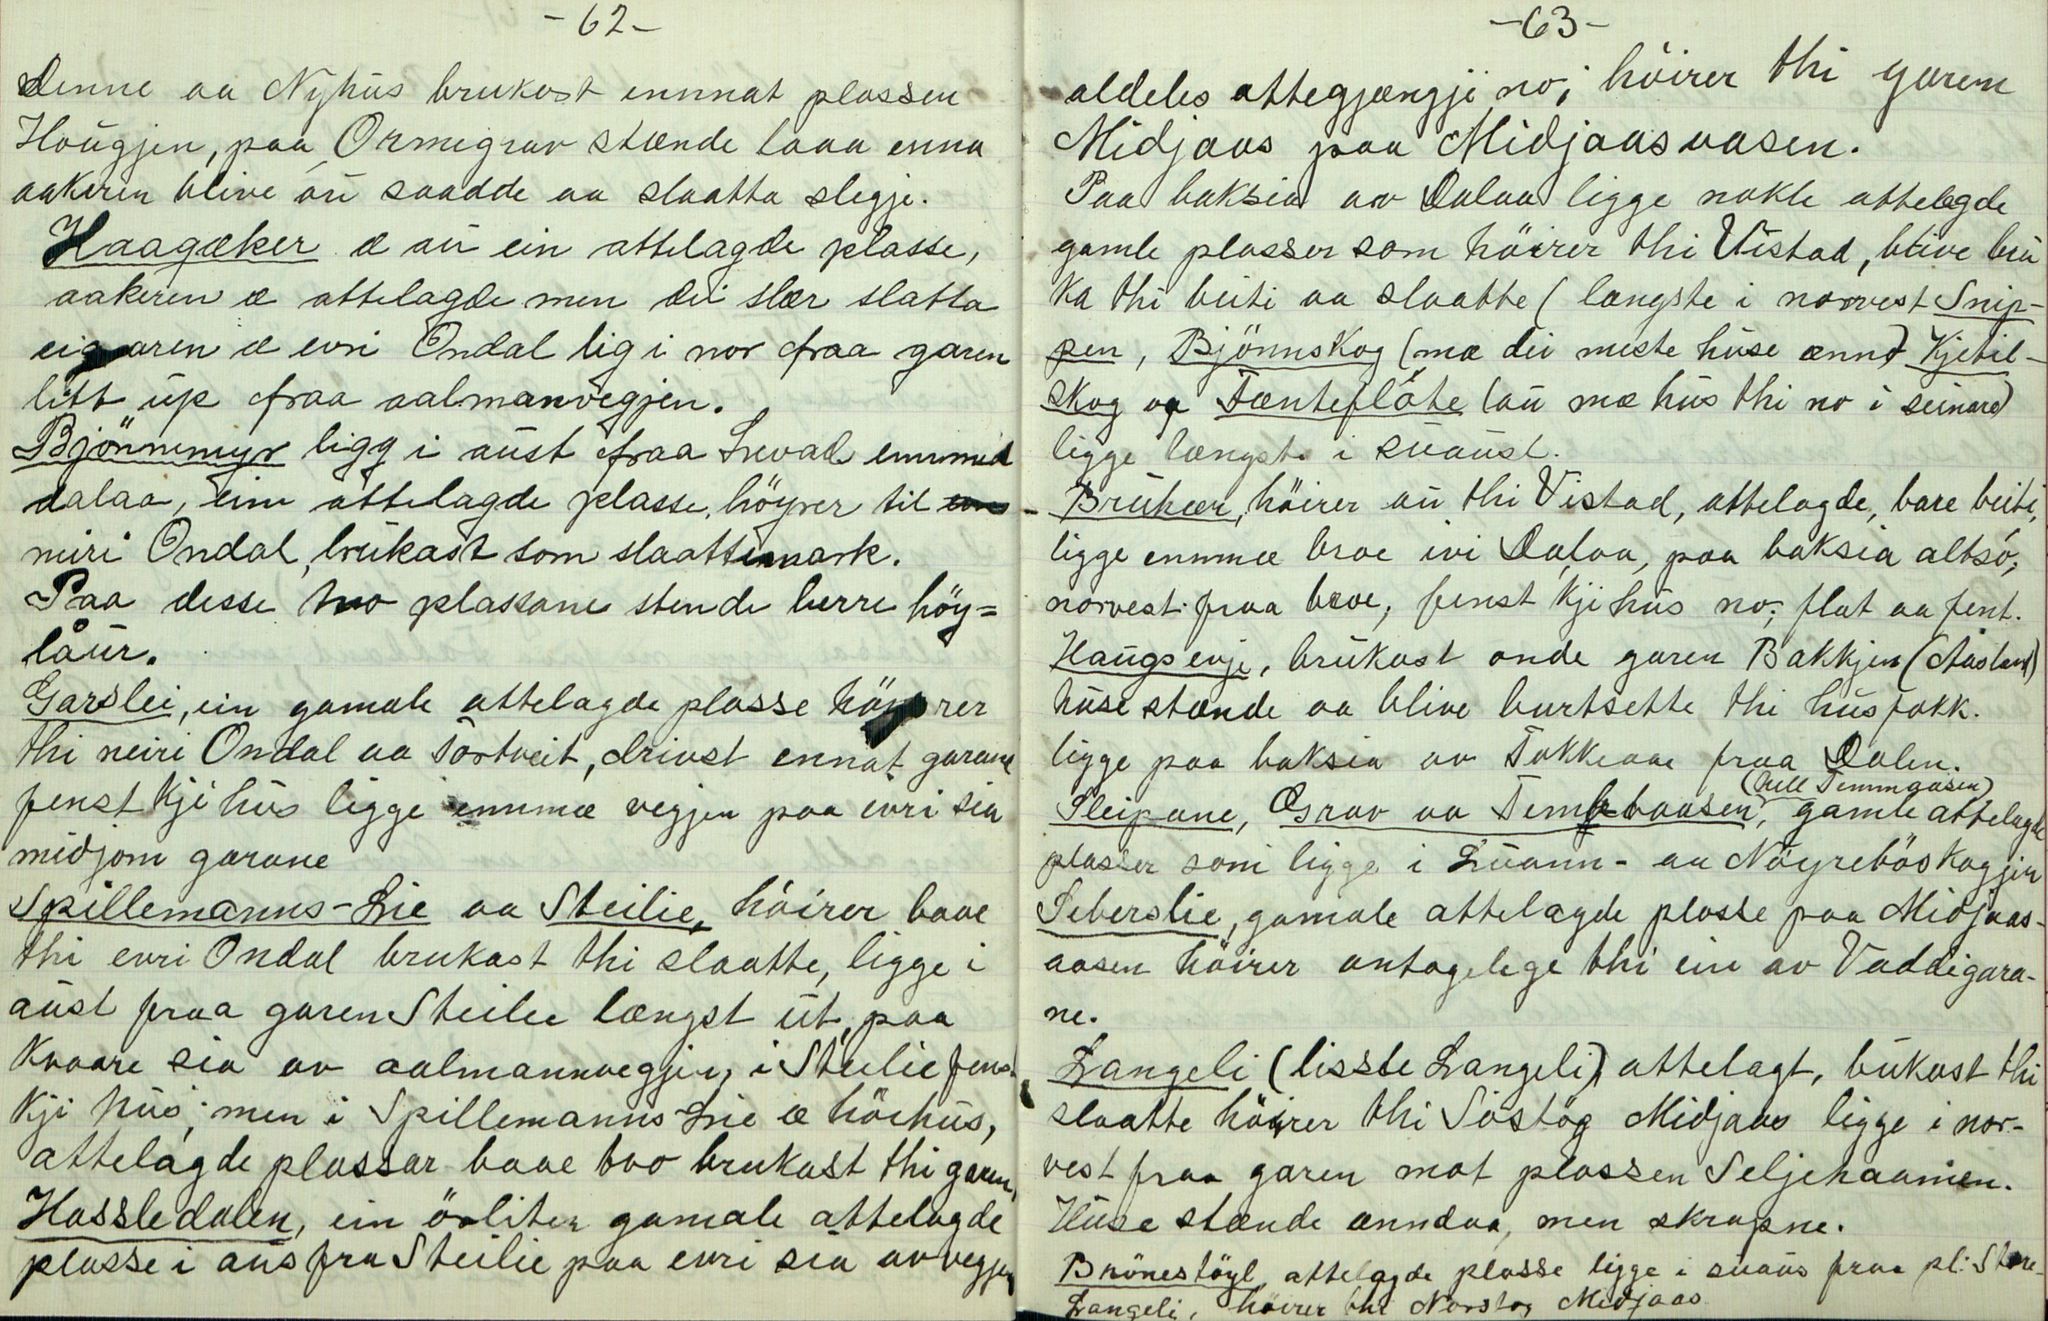 -62-
Denne aa Nyhus brukast ennnat plassen
Haugjen, paa Ormegrav stænde laaa enna
aakeren blive au saadde aa slaatta slegje.
Haagæker æ au ein attelagde plasse,
aakeren æ attelagde men dei slær slatta
eigaren æ evri Ondal lig i nor fraa garen
litt up fraa aalmanvegjen.
Bjönnemyr ligg i aust fraa Levad emmed
dalaa, ein attelagde plasse, höyrer til
neiri Ondal, brukast som slaattemark.
Paa desse two plassane stende berre höy=
låur.
Garslei, ein gamale attelagde plasse höyrer
thi neiri Ondal aa Törtveit, drivst ennat garane
fenst kji hus ligge emmæ vegjen paa evri sia
midjom garane
Spillemanns-Lie aa Steilie, höirer baae
thi evri Ondal brukast thi slaatte, ligge i
aust fraa garen Steilie længst ut, paa
kvaare sia av aalmannvegjen, i Steilie fens
kji hus; men i Spillemanns Lie æ höihus,
attelagde plassar baae tvo brukast thi garen,
Hassledalen, ein örliten gamale attelagde
plasse i aus fra Steilie paa evri sia av vegjen
-63-
aldeles attegjængji no; höirer thi garen
Midjaas paa Midjaasaasen.
Paa baksia av Dalaa ligge nokle attelagde
gamle plasser som höirer thi Vistad, blive bru
ka thi beiti aa slaatte (længste i norvest Snip-
pen, Bjönnskog (mæ dei meste huse ænno) Kjetil-
skog og Tænteflöte (au mæ hus thi no i seinare)
ligge længste i suaust.
- Brukær, höirer au thi Vistad, attelagde, bare beiti,
ligge emmæ broe ivi Dalaa, paa baksia altso;
norvest fraa broe, fenst kji hus no; flat aa fent.
Haugsevje, brukast onde garen Bakkjen (Aasland)
huse stænde aa blive burtsette thi husfokk.
ligge paa baksia av Tokkeaae fraa Dalen.
(hell Temmaasen)
Sleipane, Grav aa Tembraasen, gamle attelagde
plasser som ligge i Luann- aa Nöyreböskogjen
Seberslie, gamale attelagde plasse paa Midjaas-
aasen höirer antagelege thi ein av Vaddigara-
ne.
Langeli (lissle Langeli) attelagt, bukast thi
slaatte höirer thi Söstög Midjaas ligge i nor-
vest fraa garen mot plassen Seljehaamen.
Huse stænde ænndaa, men skrapne.
Brönestöyl attelagde plasse ligge i suaus fraa pl: Store-
Langeli, höirer thi Norstog Midjaas